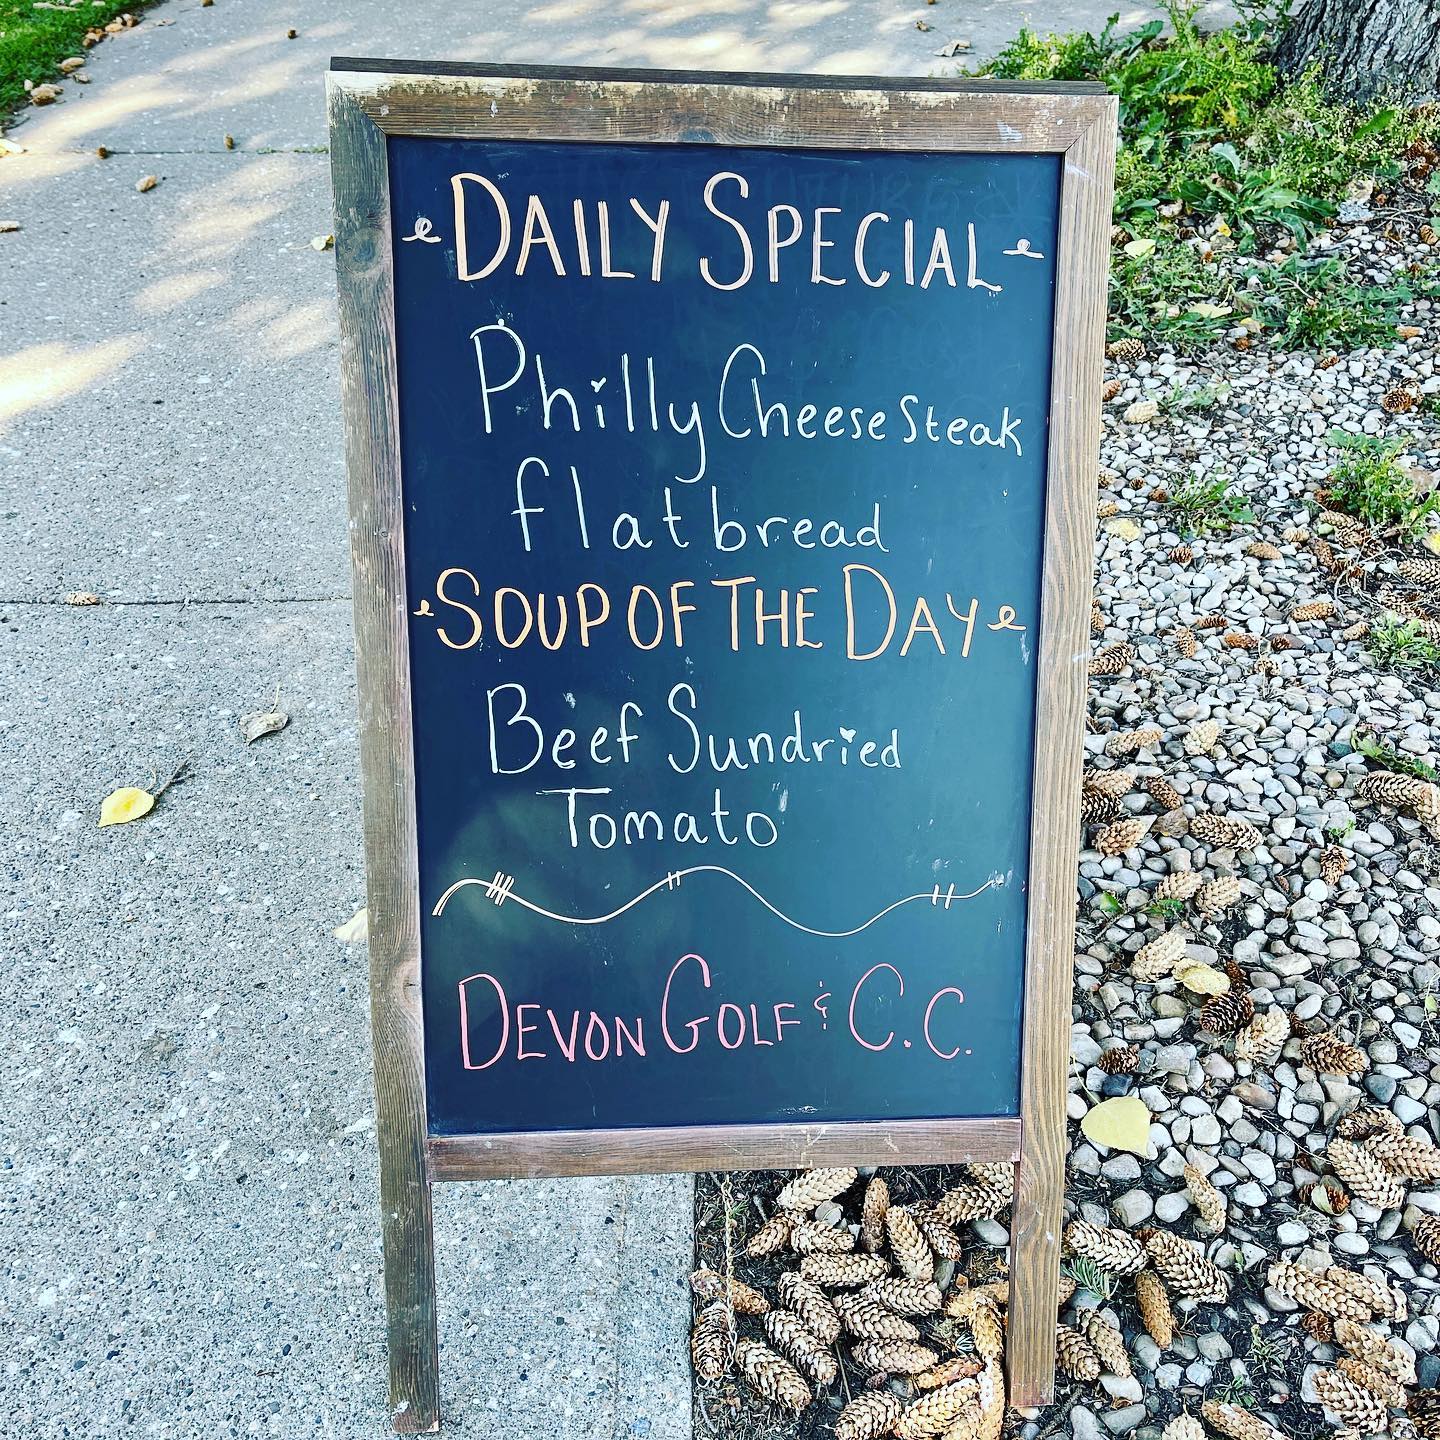 DAILY SPECIAL
Philly Cheese Steak
flatbread
SOUP OF THE DAY
Beef Sundried
Tomato
DEVON GOLF & C.C.